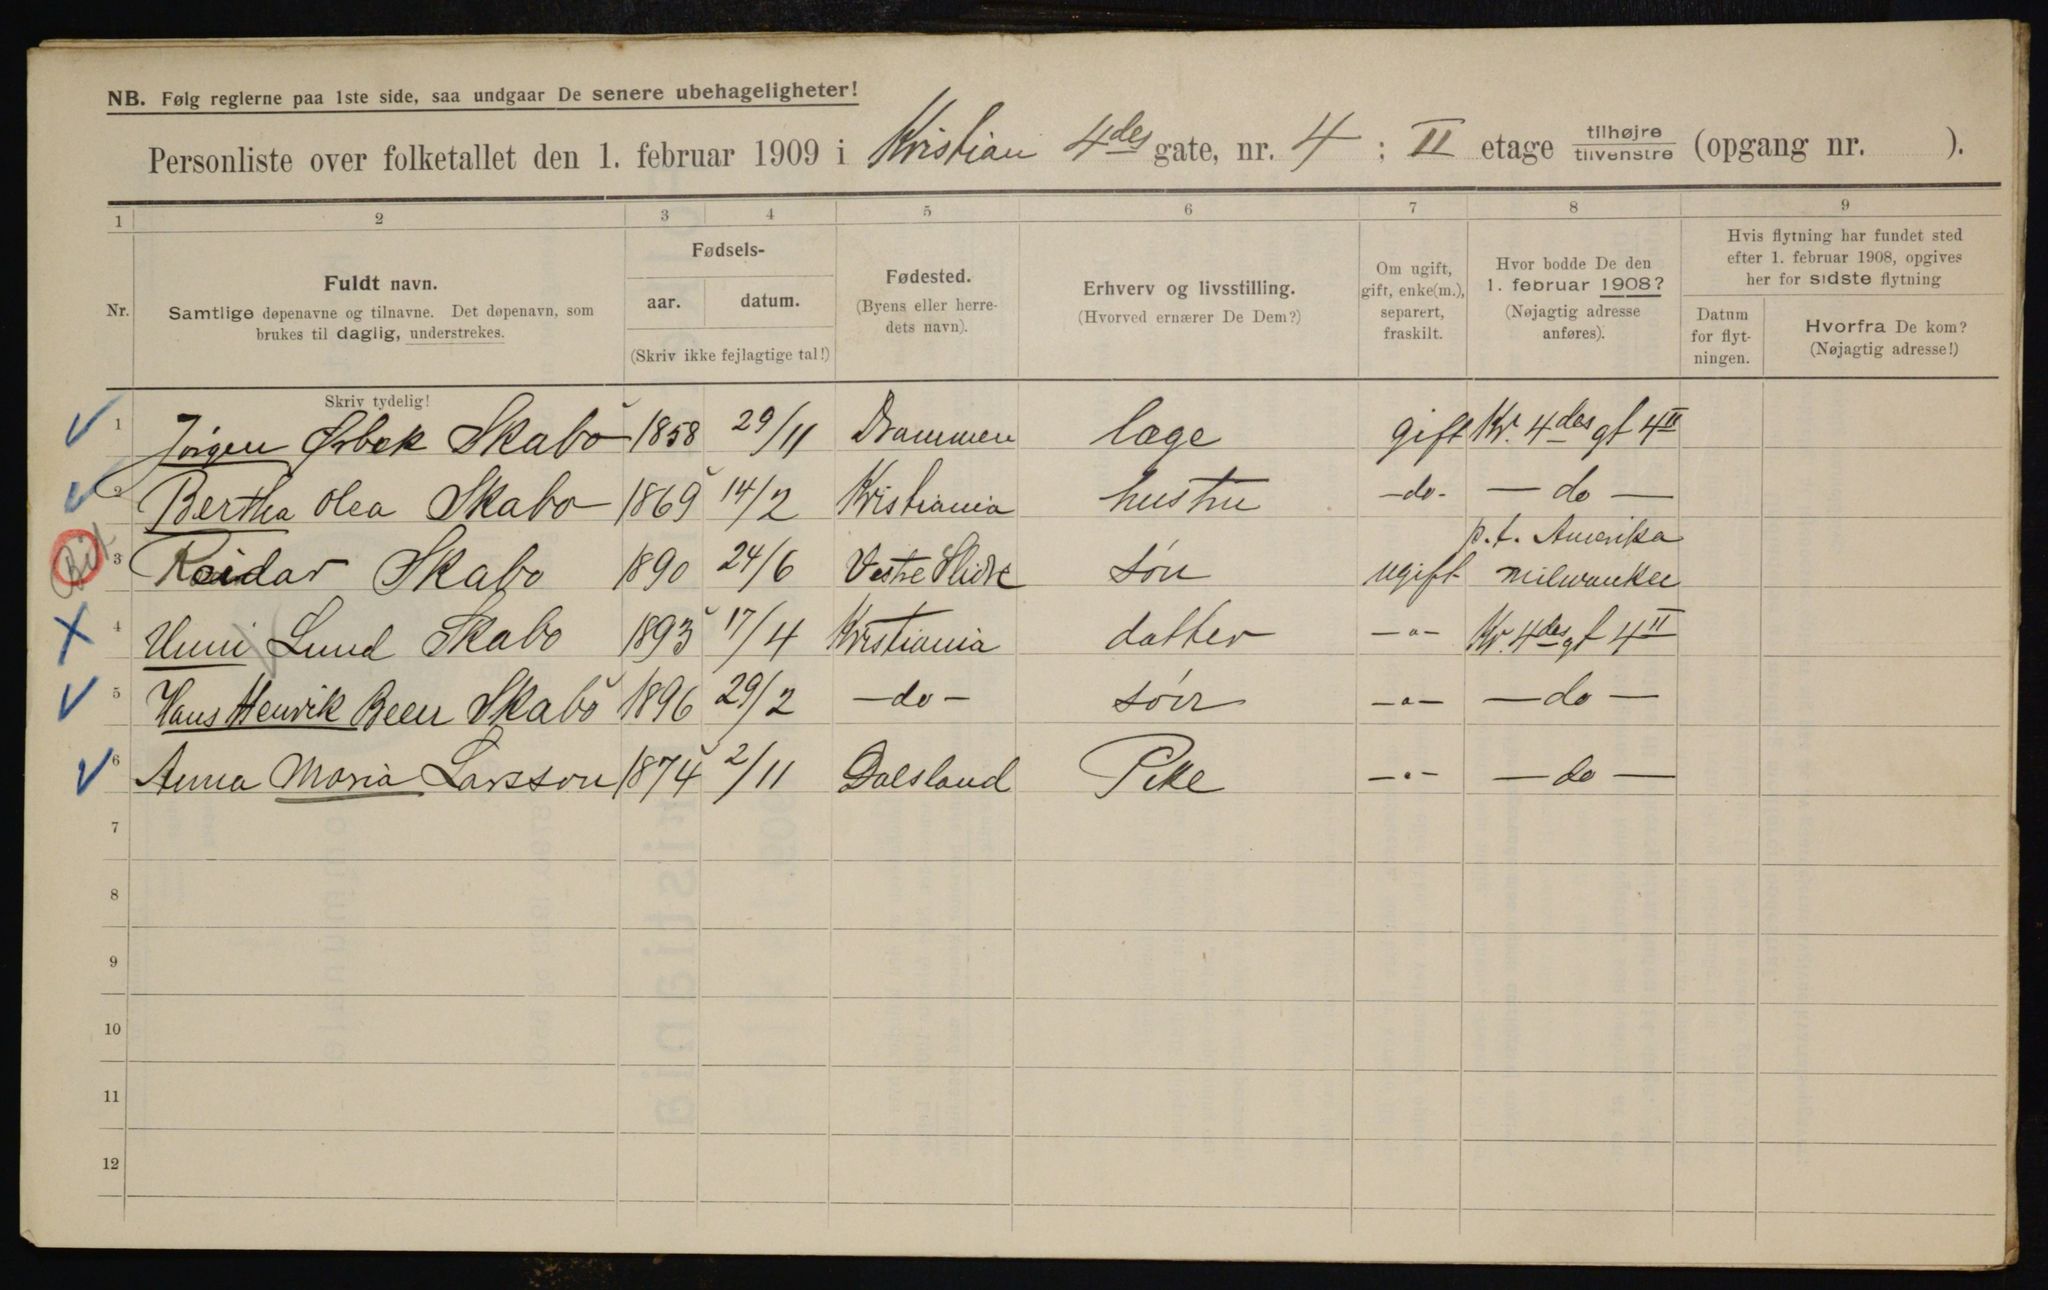 NB. Følg reglerne paa 1ste side, saa undgaar De senere ubehageligheter!
Personliste over folketallet den 1. februar 1909 i Kristian 4des gate, nr. 4 ; II etage tilhøjre tilvenstre (opgang nr. ).
1 2 3 4 5 6 7 8 9
Nr. Fuldt navn. Samtlige døpenavne og tilnavne. Det døpenavn, som brukes til daglig, understrekes.
Fødsels- aar. datum. (Skriv ikke fejlagtige tal!)
Fødested. (Byens eller herredets navn).
Erhverv og livsstilling. (Hvorved ernærer De Dem?)
Om ugift, gift, enke(m.), separert, fraskilt.
Hvor bodde De den 1. februar 1908? (Nøjagtig adresse anføres).
Hvis flytning har fundet sted efter 1. februar 1908, opgives her for sidste flytning
Datum for flytningen.
Hvorfra De kom? (Nøjagtig adresse!)
Skriv tydelig!
1 Jørgen Ørbek Skabo 1858 29/11 Drammen læge gift Kr. 4des gt 4II
2 Bertha Olea Skabo 1869 14/2 Kristiania hustru -do- — do —
3 Reidar Skabo 1890 24/6 Vestre Slidre søn ugift p.t. Amerika Milwaukee
4 Unni Lund Skabo 1893 17/4 Kristiania datter -"- Kr. 4des gt 4II
5 Hans Henrik Beer Skabo 1896 29/2 -do- søn -"- — do —
6 Anna Maria Larsson 1874 2/11 Dalsland Pike -"- — do —
7
8
9
10
11
12